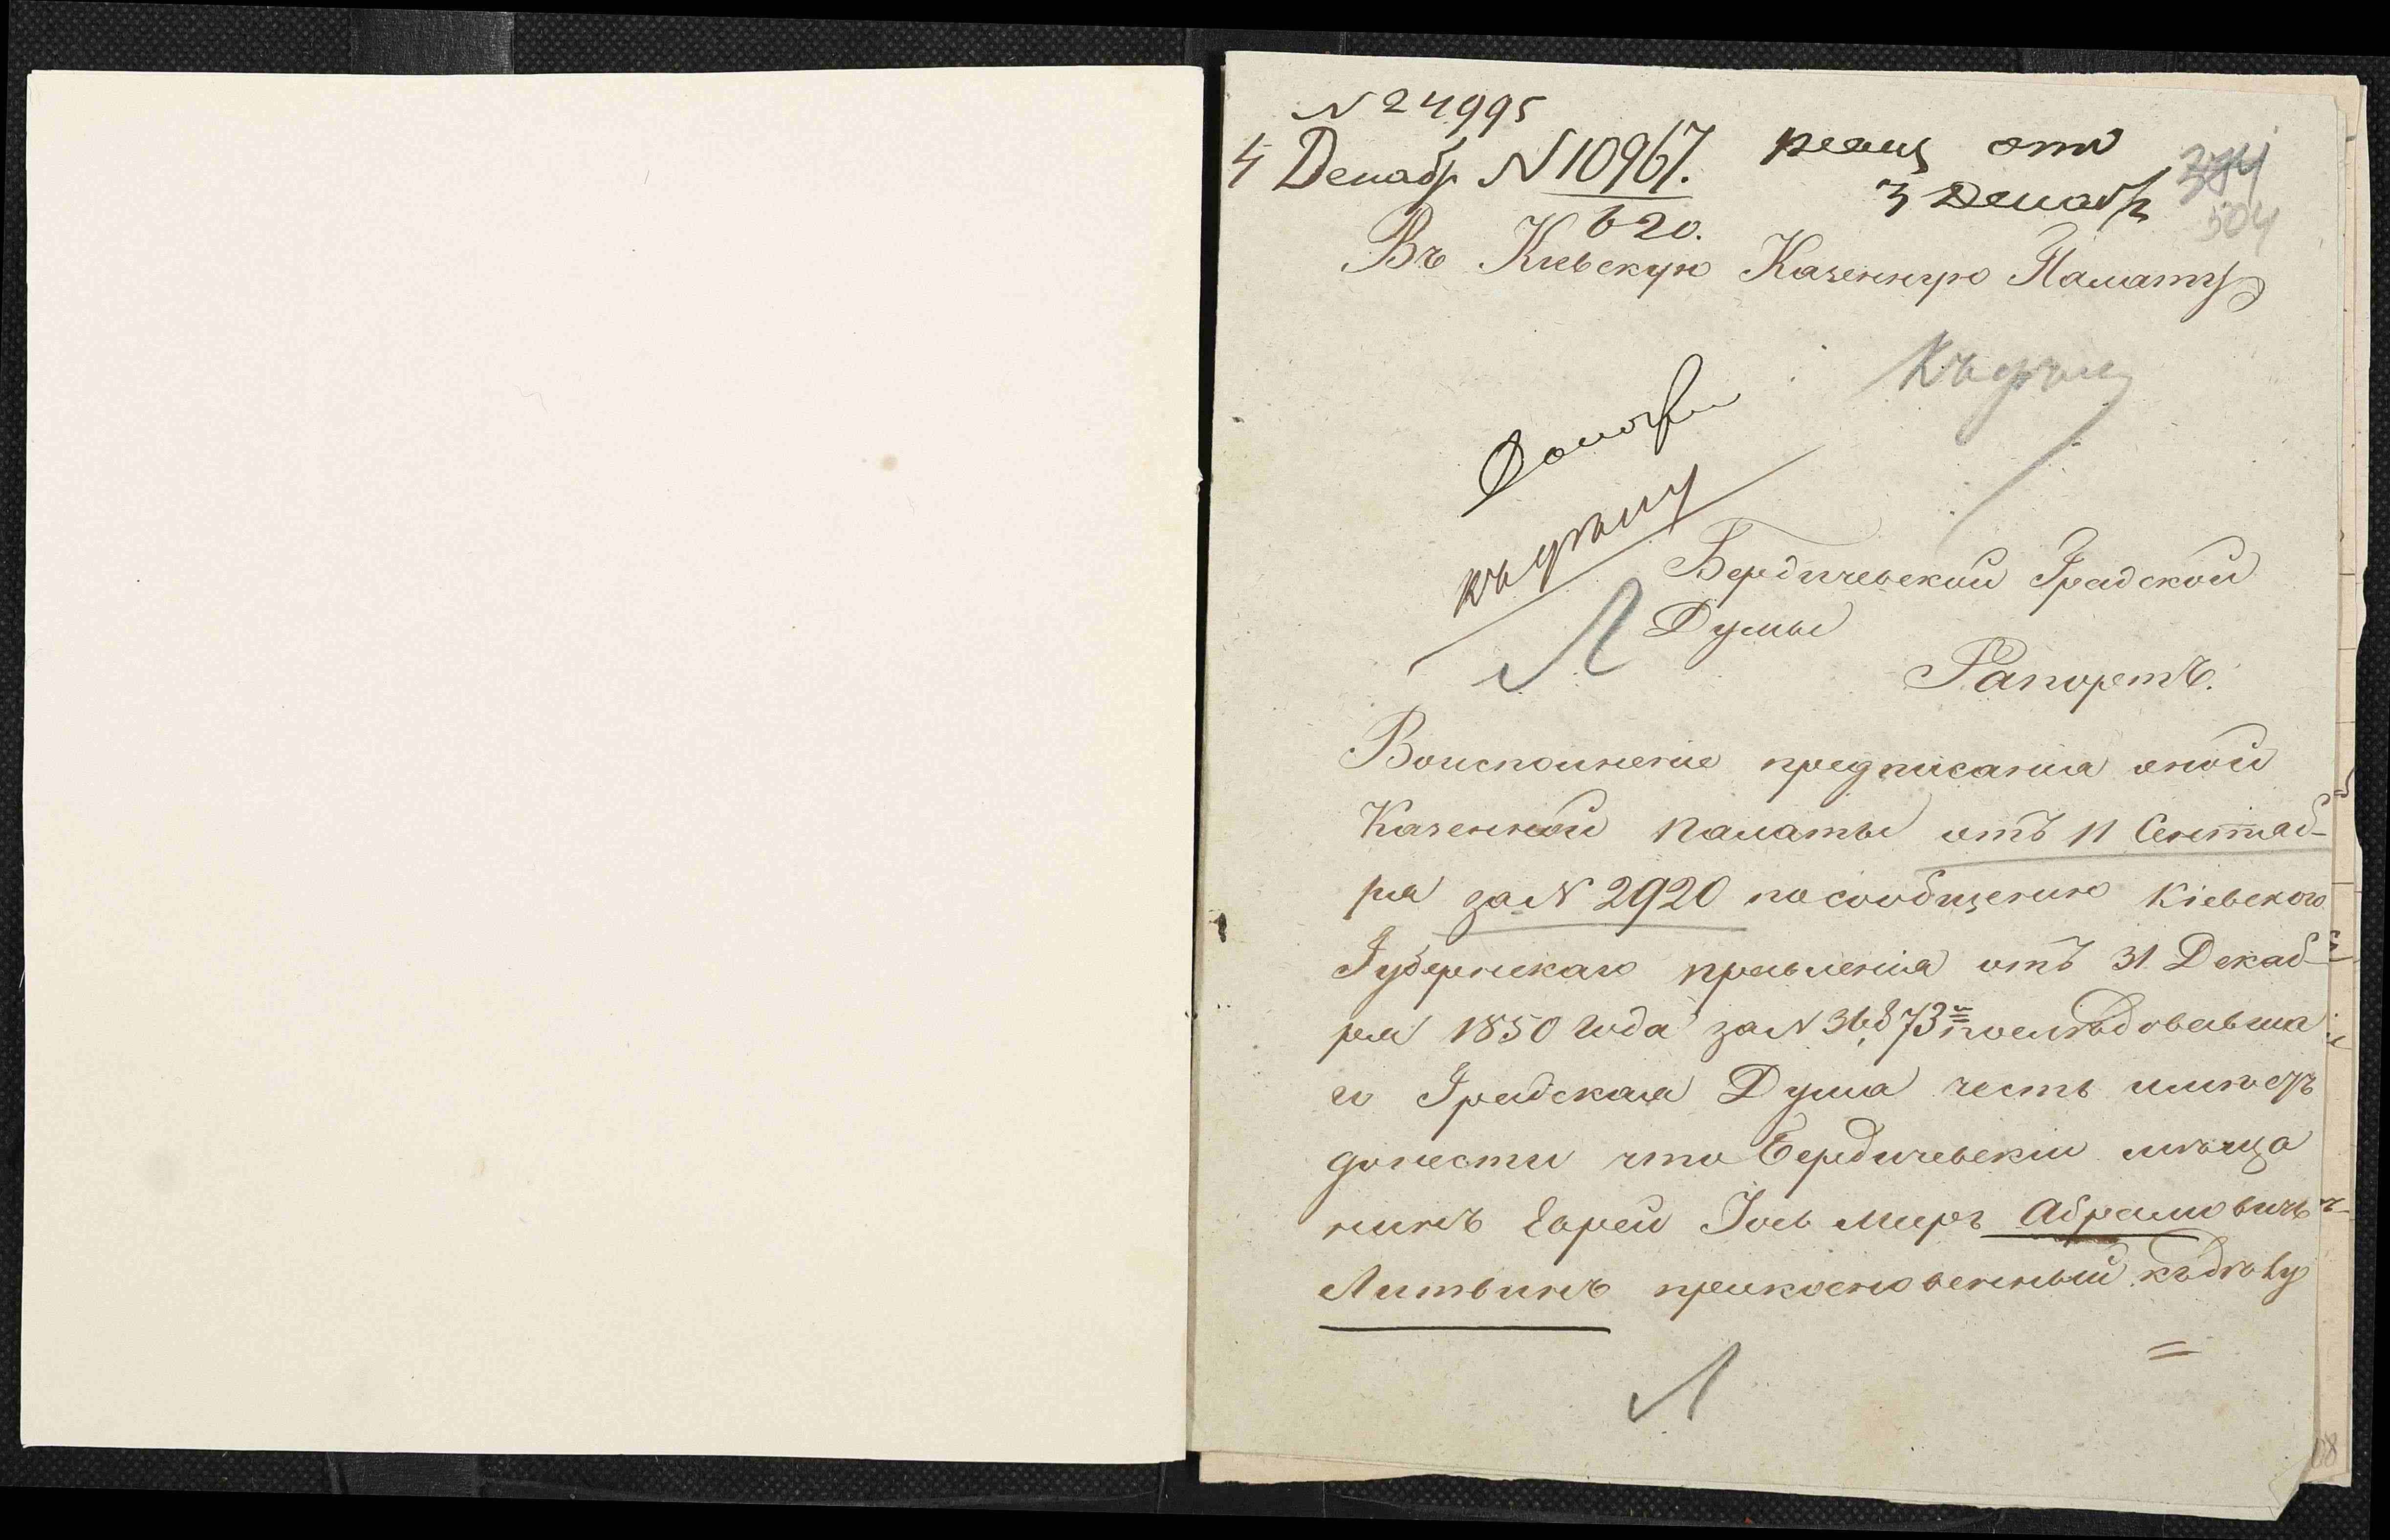 N 24995
4 Декабр N 10967.
620.
отв
3 Декабр
384
504
Въ Кіевскую Казенную Палату
Къ дѣлу
къ дѣлу
Бердичевской Градской
Думы
Рапортъ.
Воисполнение предписания оной
Казенной палаты отъ 11 Сентяб-
ря за N 2920 по сообщению Кіевского
Губернскаго правления отъ 31 Декаб-
ря 1850 года за N последовавша
го Градская Дума честь имѣетъ
донести что Бердичевский мѣща
нинъ Еврей Абрамовичъ
Литвинъ прикосновенный къ дѣлу